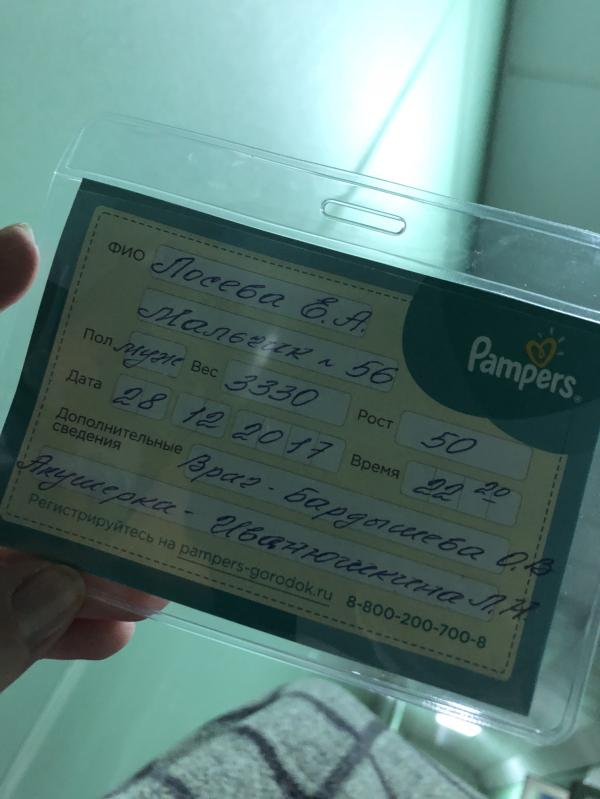 ФИО Лосева Е.А.
Мальчик ~ 56
Pampers®
Пол муж Вес 3330 Рост 50
Дата 28 12 2017 Время 22 20
Дополнительные сведения Врач - Бардышева О.В
Акушерка - Иванюшкина Л.Н.
Регистрируйтесь на pampers-gorodok.ru 8-800-200-700-8